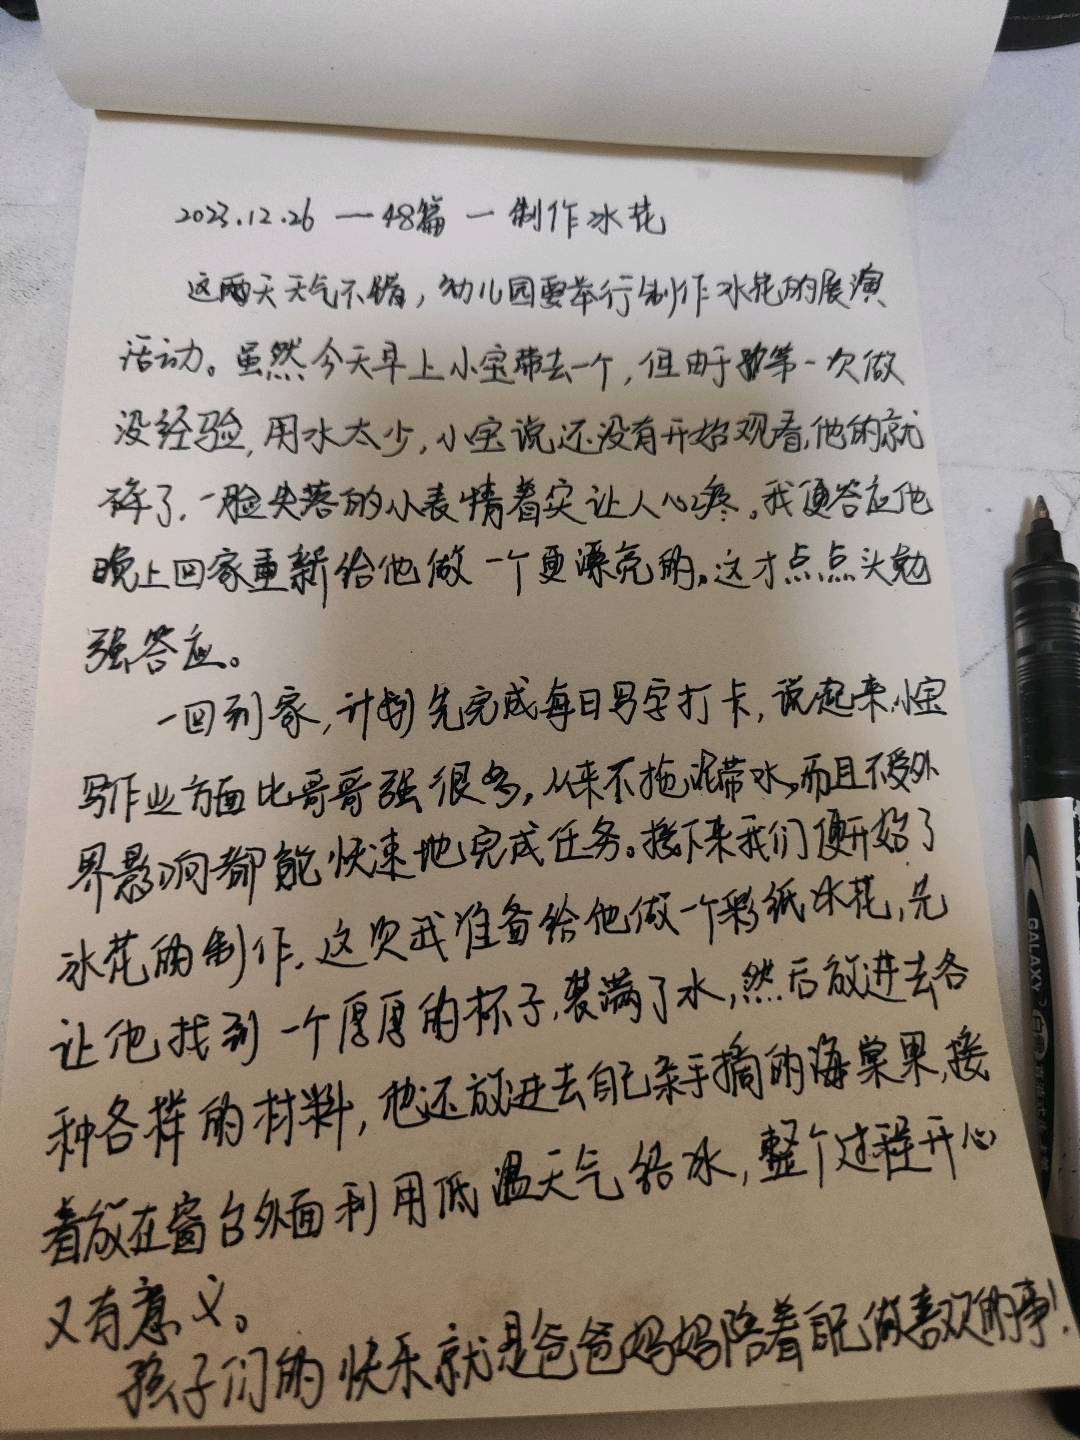 2023.12.26 一48篇 一 制作冰花
这两天天气不错，幼儿园要举行制作冰花的展演
活动。虽然今天早上小宝带去一个，但由于第一次做
没经验，用水太少，小宝说还没有开始观看，他的就
碎了，一脸失落的小表情着实让人心疼。我便答应他
晚上回家重新给他做一个更漂亮的。这才点点头勉
强答应。
一回到家，计划先完成每日写字打卡，说起来小宝
写作业方面比哥哥强很多，从来不拖泥带水，而且不受外
界影响都能快速地完成任务。接下来我们便开始了
冰花的制作，这次我准备给他做一个彩纸冰花，先
让他找到一个厚厚的杯子，装满了水，然后放进去各
种各样的材料，他还放进去自己亲手摘的海棠果，接
着放在窗台外面利用低温天气结冰，整个过程开心
又有意义。
孩子们的快乐就是爸爸妈妈陪着自己做喜欢的事！
GALAXY